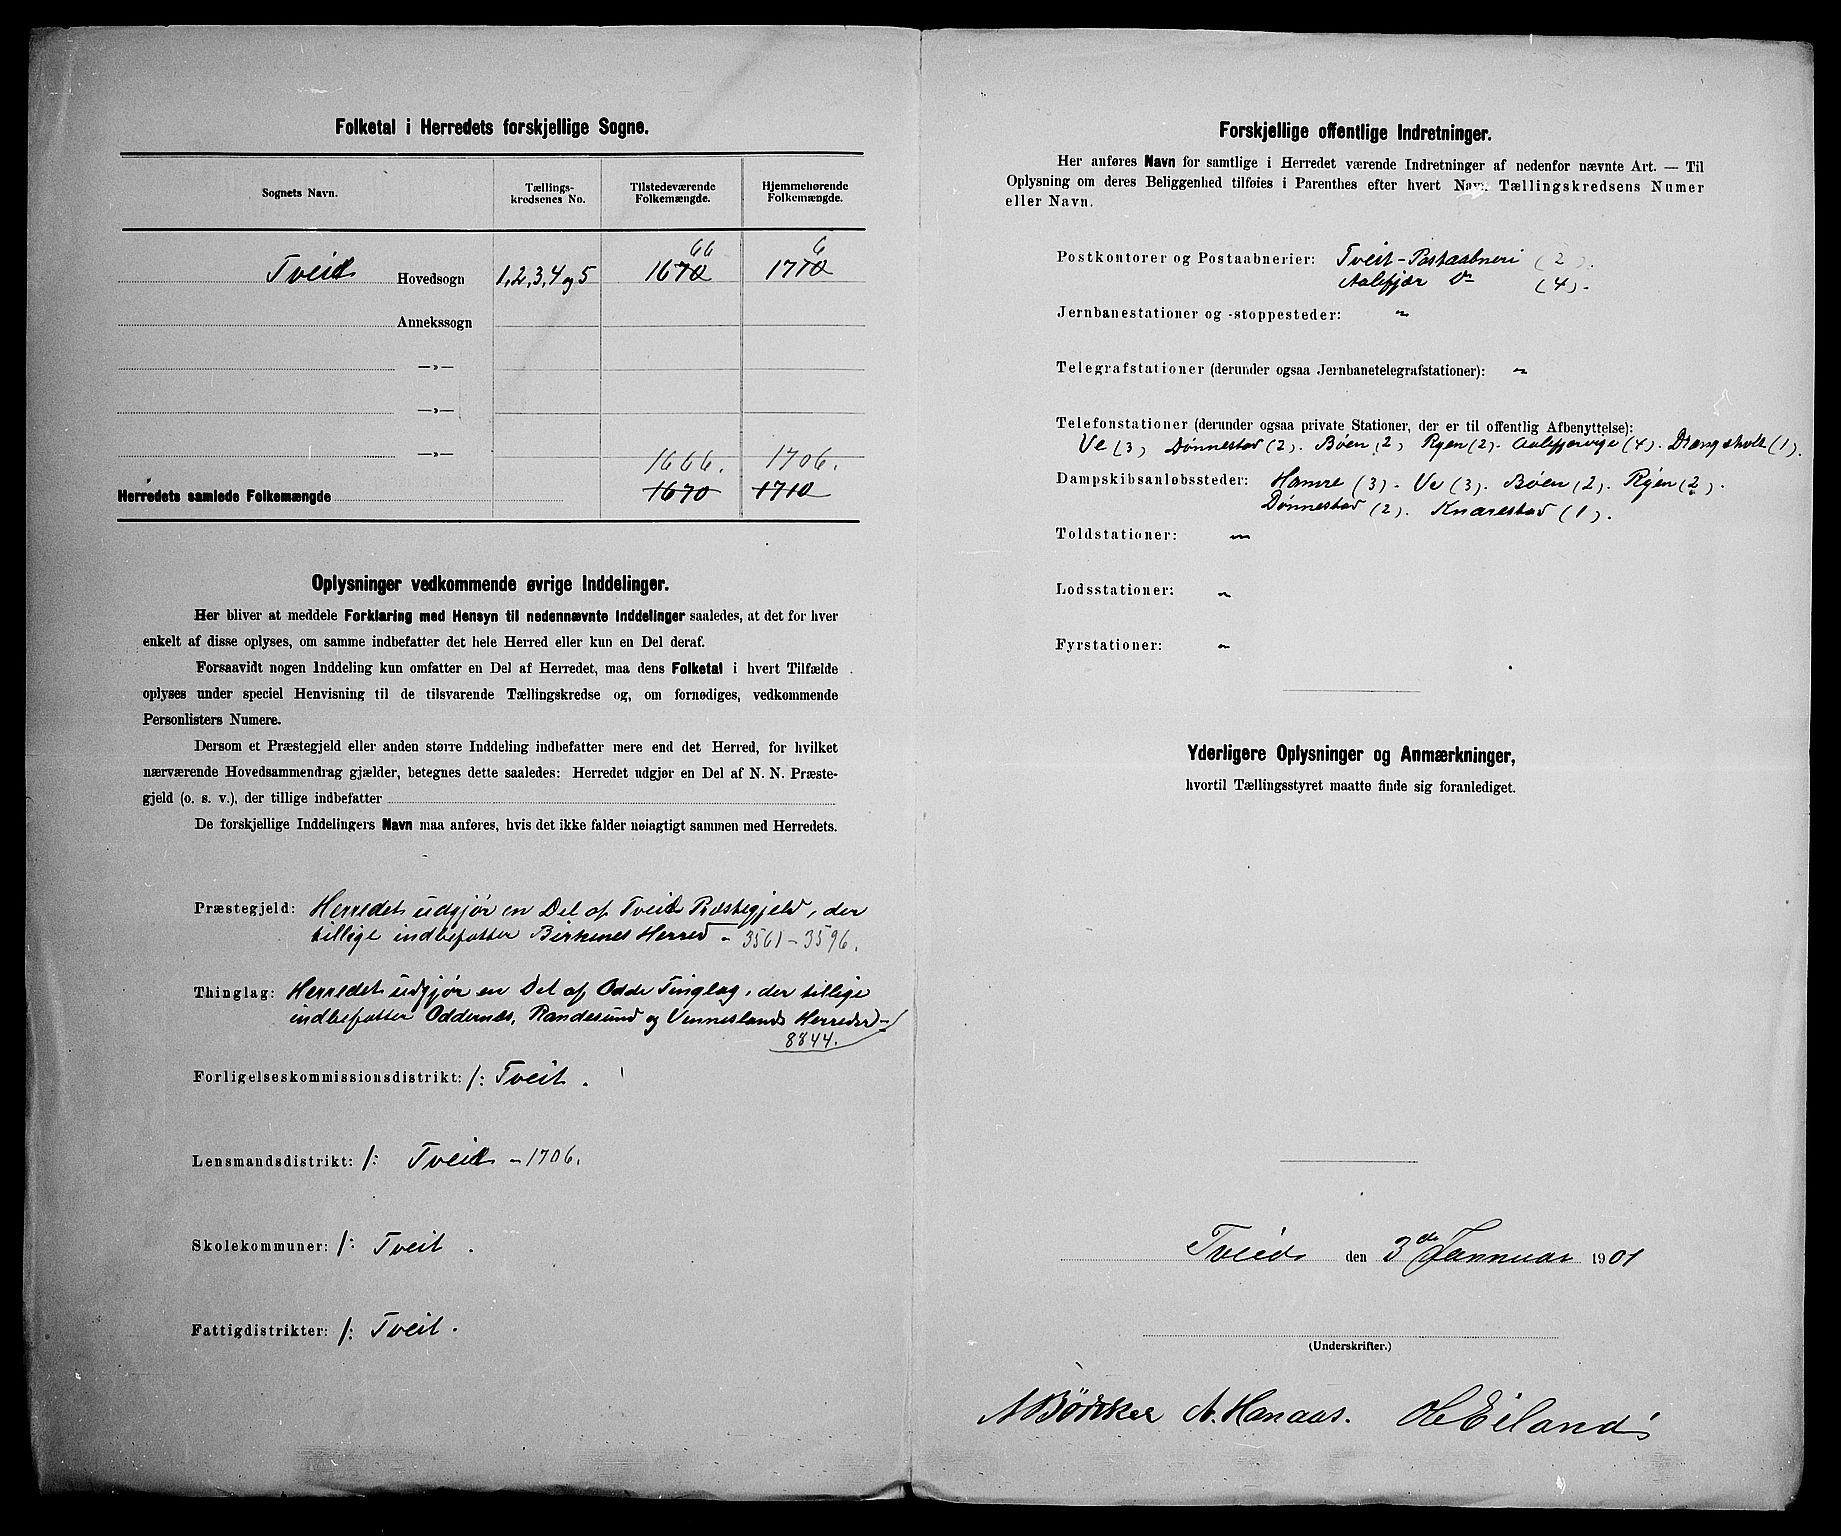 Folketal i Herredets forskjellige Sogne.
Sognets Navn.
Tællings-
kredsenes No.
Tilstedeværende
Folkemængde.
Hjemmehørende
Folkemængde.
66 6
Tveit Hovedsogn 1,2,3,4 og 5 1670 1710
Annekssogn
—»—
—»—
—»— 1666. 1706.
Herredets samlede Folkemængde 1670 1710
Oplysninger vedkommende øvrige Inddelinger.
Her bliver at meddele Forklaring med Hensyn til nedennævnte Inddelinger saaledes, at det for hver
enkelt af disse oplyses, om samme indbefatter det hele Herred eller kun en Del deraf.
Forsaavidt nogen Inddeling kun omfatter en Del af Herredet, maa dens Folketal i hvert Tilfælde
oplyses under speciel Henvisning til de tilsvarende Tællingskredse og, om fornødiges, vedkommende
Personlisters Numere.
Dersom et Præstegjeld eller anden større Inddeling indbefatter mere end det Herred, for hvilket
nærværende Hovedsammendrag gjælder, betegnes dette saaledes: Herredet udgjør en Del af N. N. Præste-
gjeld (o. s. v.), der tillige indbefatter
De forskjellige Inddelingers Navn maa anføres, hvis det ikke falder nøiagtigt sammen med Herredets.
Præstegjeld: Herredet udgjør en Del af Tveit Præstegjeld, der
tillige indbefatter Birkenes Herred - 3561 - 3596.
Thinglag: Herredet udgjør en Del af Odde Tinglag, der tillige
indbefatter Oddernæs, Randesund og Venneslands Herreder -
8844.
Forligelseskommissionsdistrikt: /: Tveit.
Lensmandsdistrikt: /: Tveit - 1706.
Skolekommuner: /: Tveit.
Fattigdistrikter: /: Tveit.
Forskjellige offentlige Indretninger.
Her anføres Navn for samtlige i Herredet værende Indretninger af nedenfor nævnte Art. — Til
Oplysning om deres Beliggenhed tilføies i Parenthes efter hvert Navn Tællingskredsens Numer
eller Navn.
Postkontorer og Postaabnerier: Tveit - Postaabneri (2).
Aalefjær Do (4).
Jernbanestationer og -stoppesteder: "
Telegrafstationer (derunder ogsaa Jernbanetelegrafstationer): "
Telefonstationer (derunder ogsaa private Stationer, der er til offentlig Afbenyttelse):
Ve (3) Dønnestad (2). Bøen (2) Ryen (2). (4). Drangsholt (1).
Dampskibsanløbssteder: Hamre (3). Ve (3). Bøen (2). Ryen (2).
Dønnestad (2). Knarestad (1).
Toldstationer: "
Lodsstationer: "
Fyrstationer: "
Yderligere Oplysninger og Anmærkninger,
hvortil Tællingsstyret maatte finde sig foranlediget.
Tveid den 3de Januar 1901
(Underskrifter.)
A Bødtker A. Hanaas. Eiland